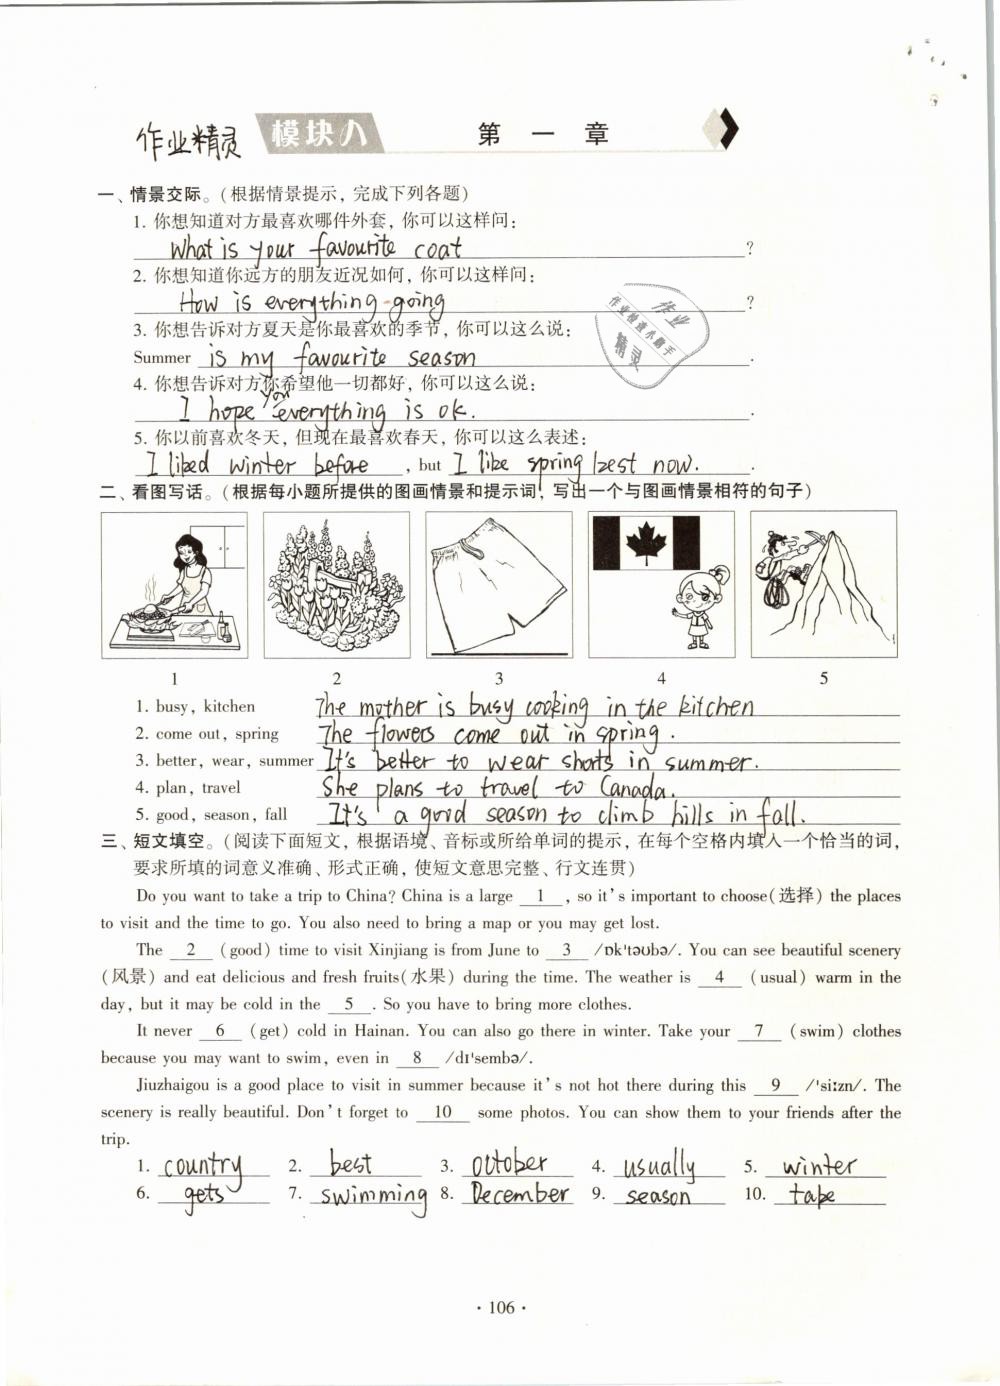 作业精灵 模块八 第一章
一、情景交际。(根据情景提示，完成下列各题)
1. 你想知道对方最喜欢哪件外套，你可以这样问：
What is your favourite coat ?
2. 你想知道你远方的朋友近况如何，你可以这样问：
How is everything going ?
3. 你想告诉对方夏天是你最喜欢的季节，你可以这么说：
Summer is my favourite season .
4. 你想告诉对方你希望他一切都好，你可以这么说：
you
I hope everything is ok. .
5. 你以前喜欢冬天，但现在最喜欢春天，你可以这么表述：
I liked winter before , but I like spring best now. .
二、看图写话。(根据每小题所提供的图画情景和提示词，写出一个与图画情景相符的句子)
1 2 3 4 5
1. busy, kitchen The mother is busy cooking in the kitchen
2. come out, spring The flowers come out in spring .
3. better, wear, summer It's better to wear shorts in summer.
4. plan, travel She plans to travel to Canada.
5. good, season, fall It's a good season to climb hills in fall.
三、短文填空。(阅读下面短文，根据语境、音标或所给单词的提示，在每个空格内填入一个恰当的词，
要求所填的词意义准确、形式正确，使短文意思完整、行文连贯)
Do you want to take a trip to China? China is a large 1 , so it's important to choose(选择) the places
to visit and the time to go. You also need to bring a map or you may get lost.
The 2 (good) time to visit Xinjiang is from June to 3 /ɒk'təʊbə/. You can see beautiful scenery
(风景) and eat delicious and fresh fruits(水果) during the time. The weather is 4 (usual) warm in the
day, but it may be cold in the 5 . So you have to bring more clothes.
It never 6 (get) cold in Hainan. You can also go there in winter. Take your 7 (swim) clothes
because you may want to swim, even in 8 /dɪ'sembə/.
Jiuzhaigou is a good place to visit in summer because it's not hot there during this 9 /'siːzn/. The
scenery is really beautiful. Don't forget to 10 some photos. You can show them to your friends after the
trip.
1. country 2. best 3. October 4. usually 5. winter
6. gets 7. swimming 8. December 9. season 10. take
· 106 ·